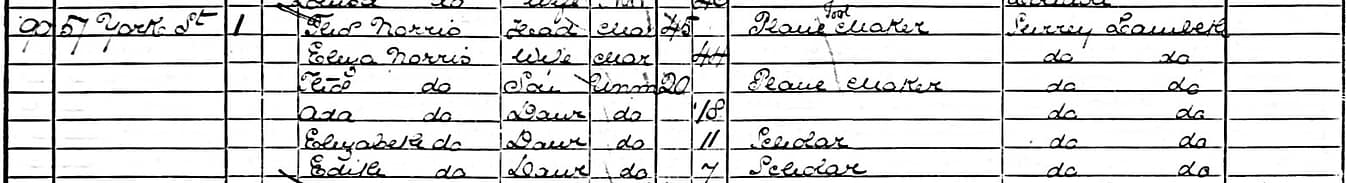 do
90 57 York St 1 Fredk Norris Head Mar 45 Plane Tool Maker Surrey Lambeth
Eliza Norris Wife Mar 44 do do
do Son Unm 20 Plane Maker do do
Ada do Daur do 18 do do
Elizabeth do Daur do 11 Scholar do do
Edith do Daur do 7 Scholar do do